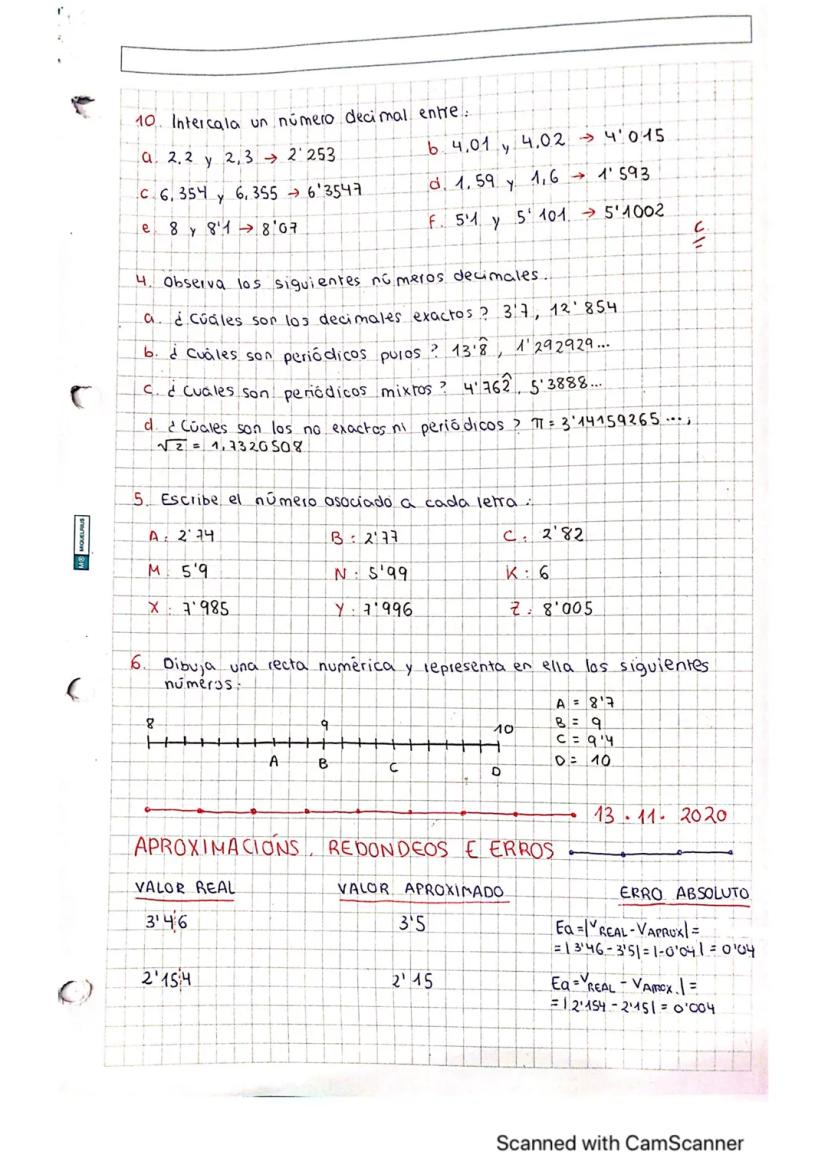 10. Intercala un número decimal entre:
a. 2,2 y 2,3 → 2'253
b. 4,01 y 4,02 → 4'015
c. 6,354 y 6,355 → 6'3547
d. 1,59 y 1,6 → 1'593
e. 8 y 8'1 → 8'07
f. 5'1 y 5'101 → 5'1002
C
4. Observa los siguientes números decimales.
a. ¿Cúales son los decimales exactos? 3'7, 12'854
b. ¿Cuáles son periódicos puros? 13'8̂, 1'292929...
c. ¿Cuales son periódicos mixtos? 4'762̂, 5'3888...
d. ¿Cúales son los no exactos ni periódicos? π = 3'14159265...,
√2 = 1,7320508
5. Escribe el número asociado a cada letra:
A: 2'74 B: 2'77 C: 2'82
M: 5'9 N: 5'99 K: 6
X: 7'985 Y: 7'996 Z: 8'005
MIQUELRIUS
6. Dibuja una recta numérica y representa en ella los siguientes
números:
8 9 10
A B C D
A = 8'7
B = 9
C = 9'4
D = 10
13.11.2020
APROXIMACIÓNS, REDONDEOS E ERROS
VALOR REAL VALOR APROXIMADO ERRO ABSOLUTO
3'46 3'5 Ea = |VREAL - VAPROX| =
= |3'46 - 3'5| = |-0'04| = 0'04
2'154 2'15 Ea = VREAL - VAPROX.| =
= |2'154 - 2'15| = 0'004
Scanned with CamScanner